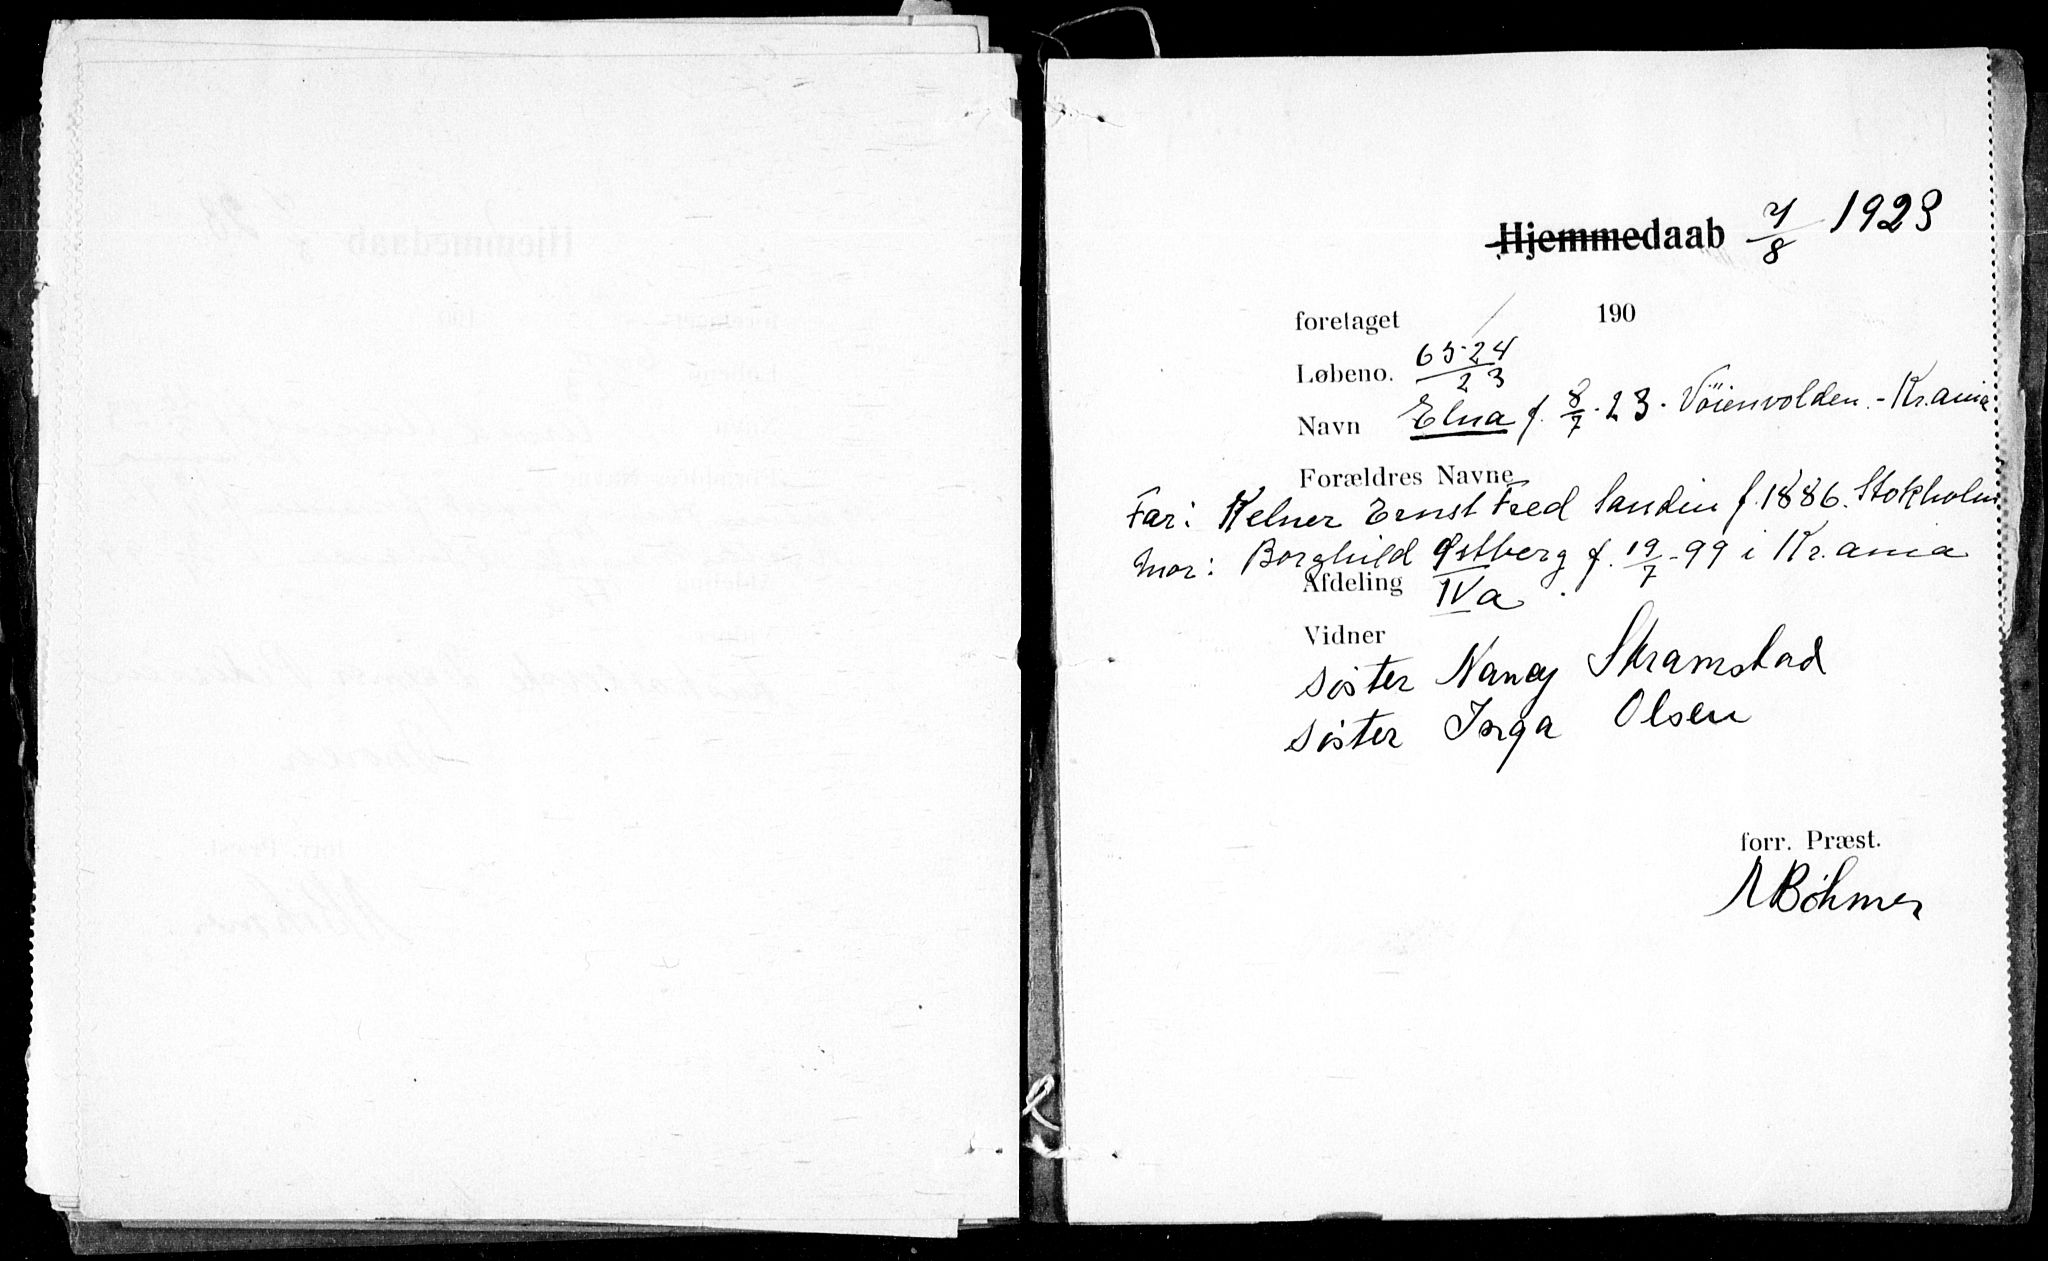 Hjemmedaab 7/8 1923
foretaget / 190
Løbeno. 6524/23
Navn Elna f. 8/7·23. Vöienvolden. - Kr.ania
Forældres Navne
Far: Kelner Ernst Fred Sandin f. 1886. Stokholm
Mor: Borghild Østberg f. 19/7-99 i Kr.ania
Afdeling IVa.
Vidner
søster Nancy Skramstad
søster Inga Olsen
forr. Præst.
ABöhmer